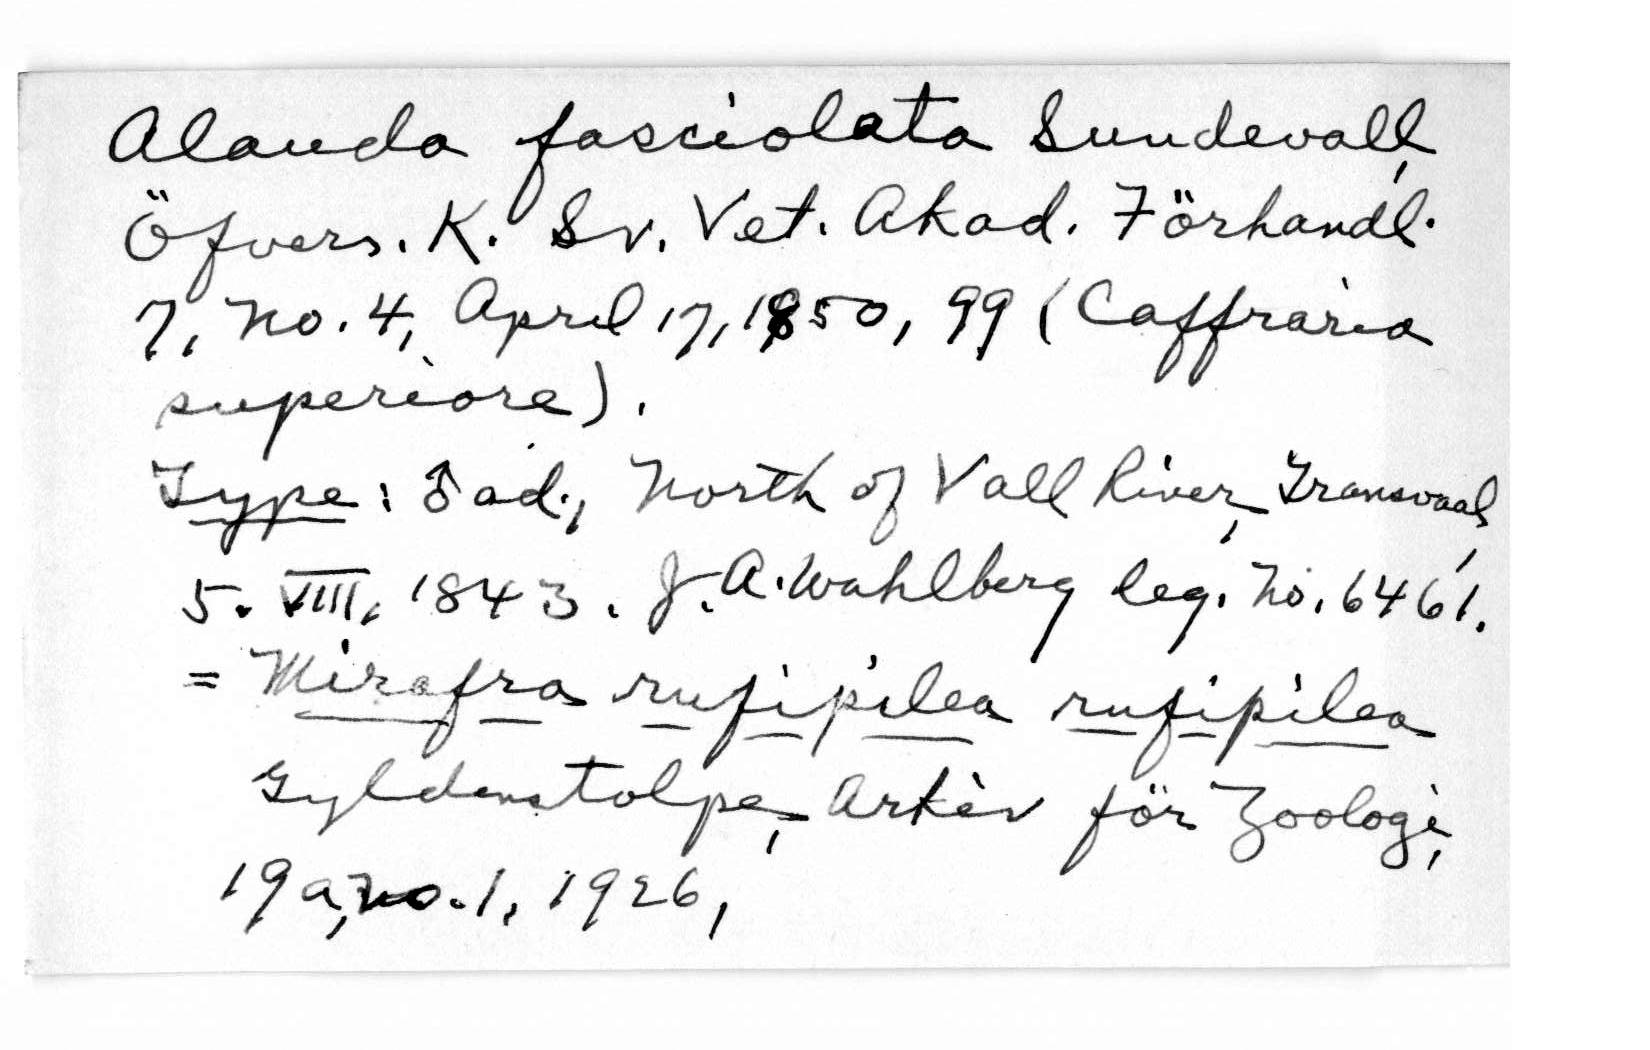 Alauda fasciolata Sundevall,
Öfvers. K. Sv. Vet. Akad. Förhandl.
7, no. 4, April 17, 1850, 99 (Caffraria
superiore).
Type: ♂ ad., North of Vall River, Transvaal,
5. VIII, 1843. J. A. Wahlberg leg. No. 6461.
= Mirafra rufipilea rufipilea
Gyldenstolpe, Arkiv för Zoologi,
19 a, no. 1, 1926,